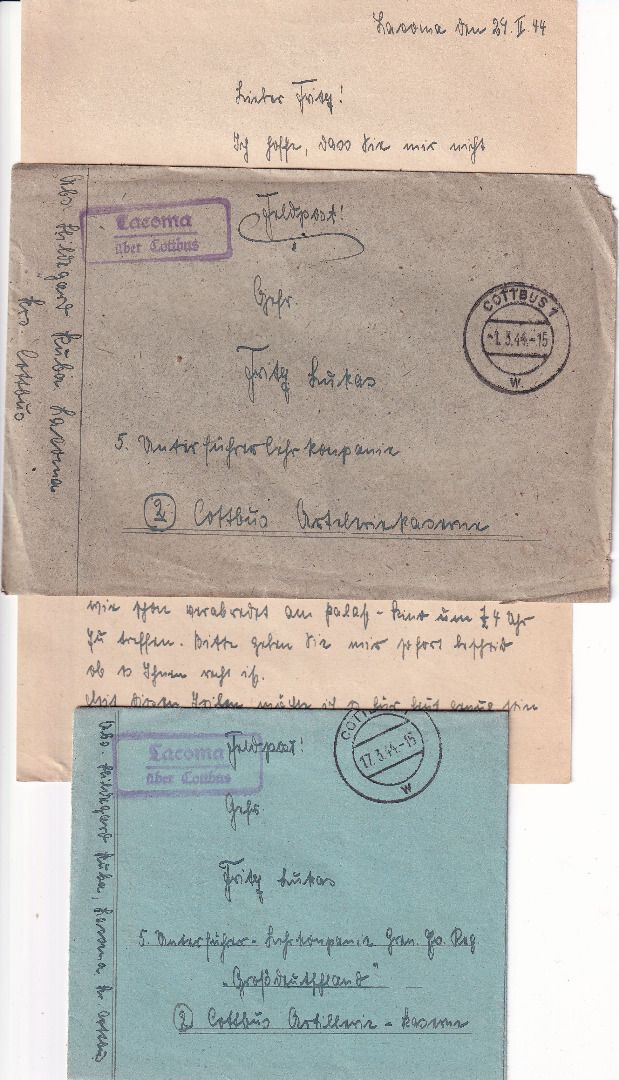 Lacoma den 29. II. 44
Lieber Fritz!
Ich hoffe, dass Sie mir nicht
Abs. Hildegard Kuba Lacoma
Krs. Cottbus
Lacoma
über Cottbus
Feldpost!
COTTBUS 1
-1.3.44.-15
W
Gefr.
Fritz Lukas
5. Unterführerlehrkompanie
2 Cottbus Artelleriekaserne
wie schon verabredet am Palast-Kino um 4 Uhr
zu treffen. Bitte geben Sie mir sofort bescheid
ob es Ihnen recht ist.
Mit diesen Zeilen möchte ich es für heut genug sein
Abs. Hildegard Kuba, Lacoma Kr. Cottbus
Lacoma
über Cottbus
Feldpost!
17.3.44.-15
W
Gefr.
Fritz Lukas
5. Unterführer-Lehrkompanie Gren. Reg
„Großdeutschland"
2 Cottbus Artillerie-Kaserne